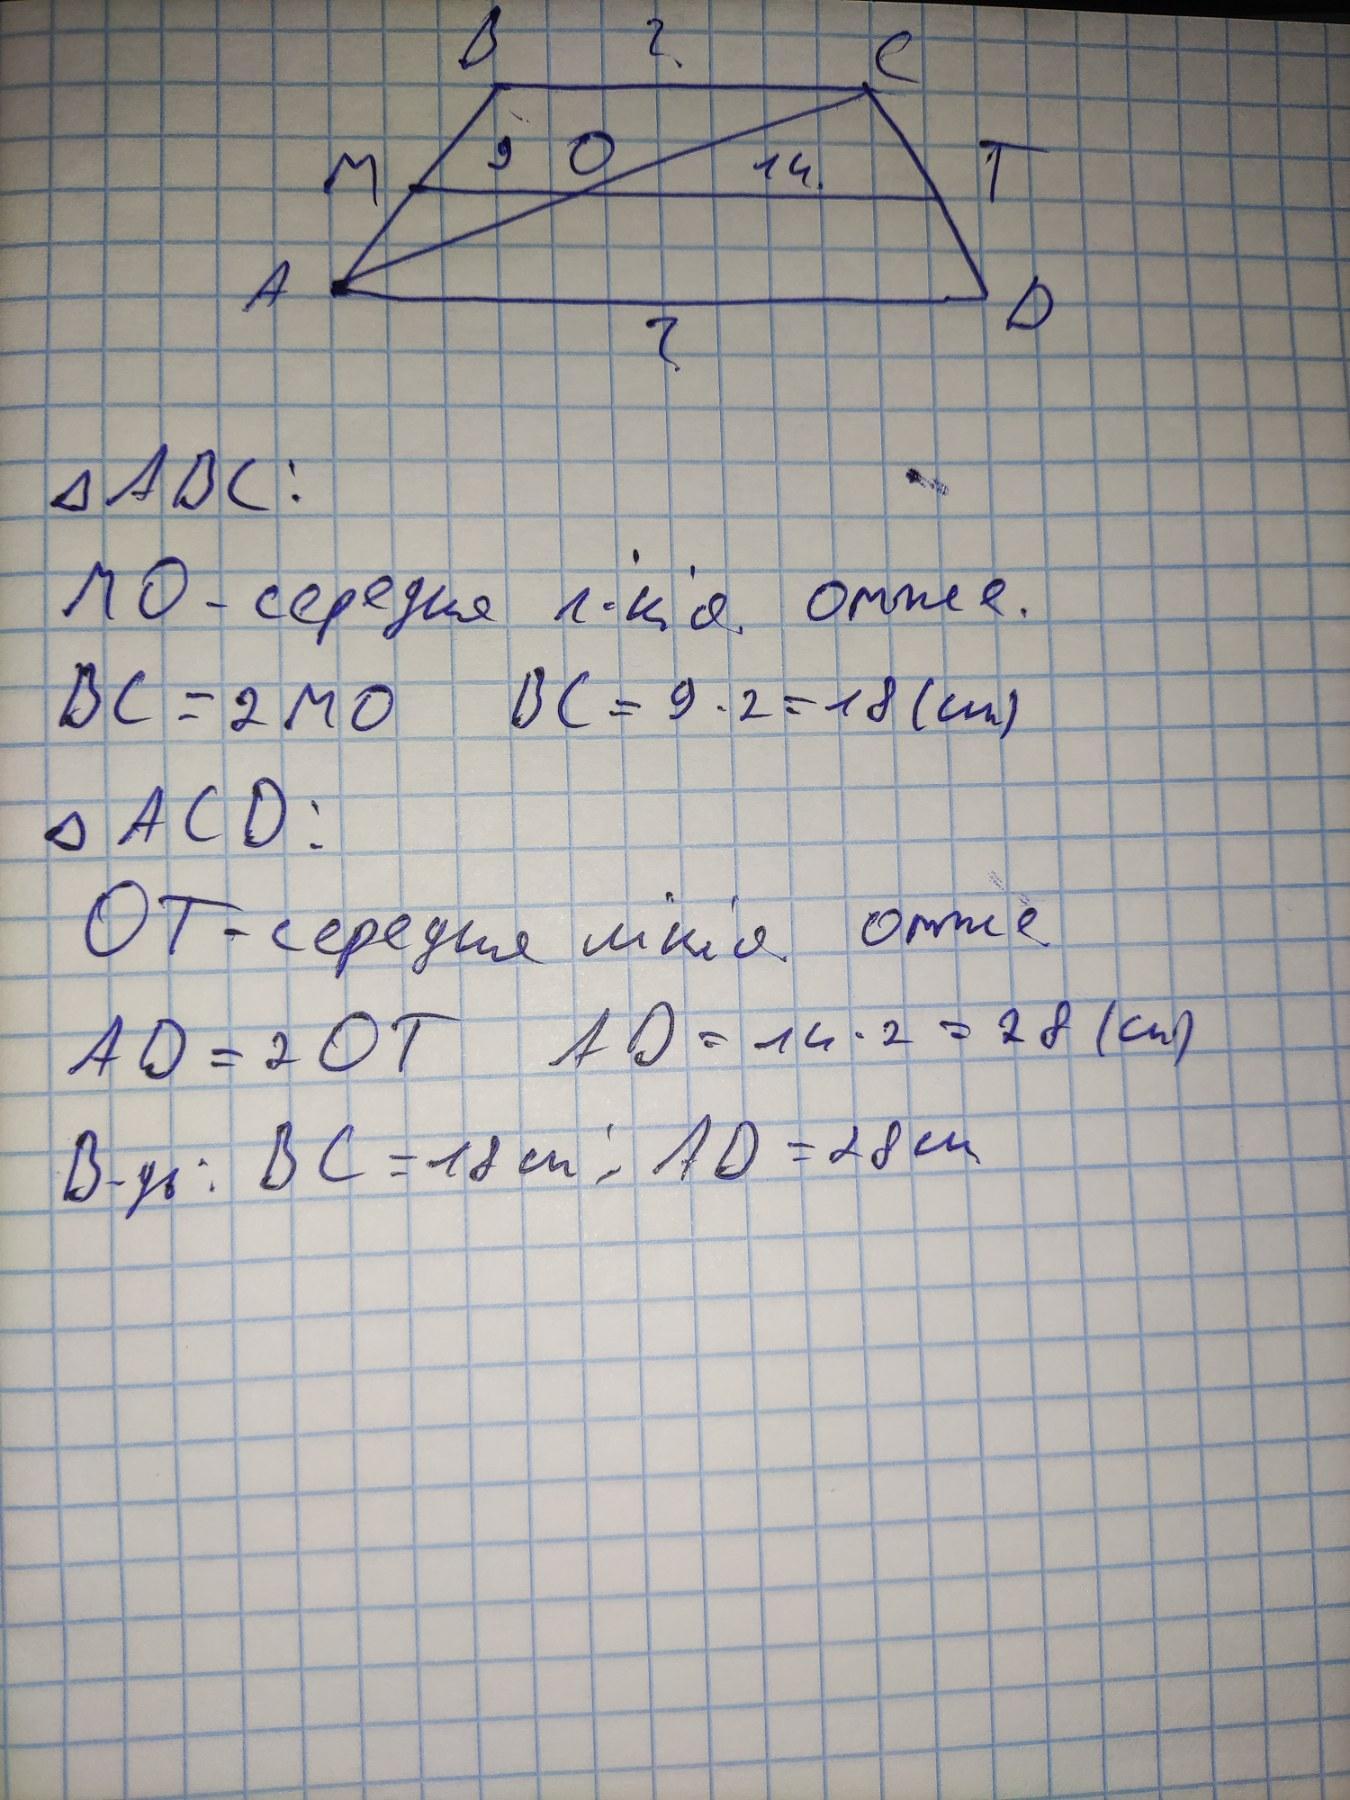 B ? C
M 9 O 14 T
A D
?
△ABC:
MO-середня лінія отже.
BC=2MO BC=9·2=18(см)
△ACD:
OT-середня лінія отже
AD=2OT AD=14·2=28(см)
В-дь: BC=18см; AD=28см